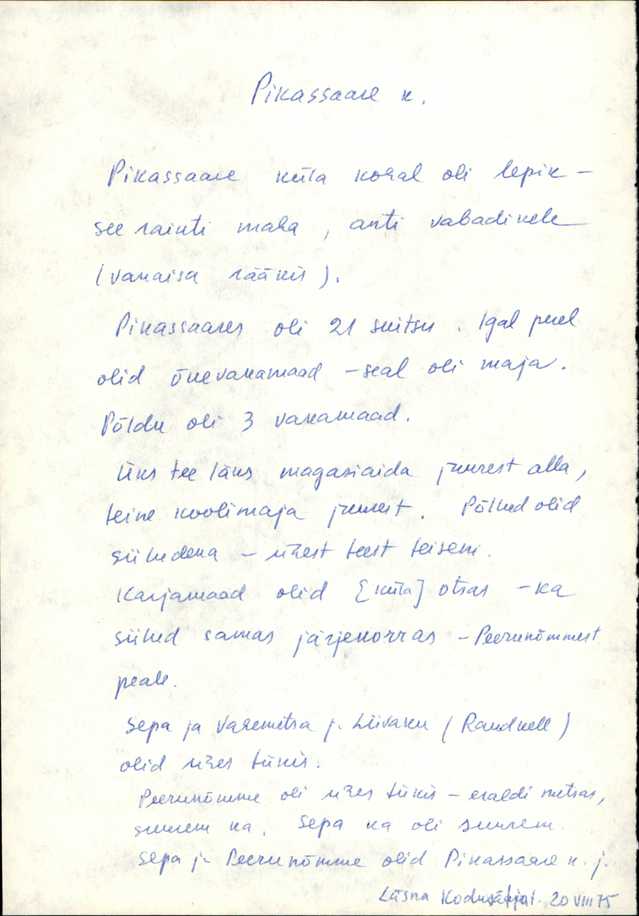 Pikassaare k.
Pikassaare küla kohal oli lepik –
see raiuti maha, anti vabadikele
(vanaisa rääkis).
Pikassaares oli 21 suitsu. Igal perel
olid õuevakamaad – seal oli maja.
Põldu oli 3 vakamaad.
Üks tee läks magasiaida juurest alla,
teine koolimaja juurest. Põllud olid
siiludena – ühest teest teiseni.
Karjamaad olid [küla] otsas – ka
siilud samas järjekorras – Peerunõmmest
peale.
Sepa ja Varemetsa j. Liivaku (Randvell)
olid ühes tükis.
Peerunõmme oli ühes tükis – eraldi metsas,
suurem ka. Sepa ka oli suurem.
Sepa ja Peerunõmme olid Pikassaare k. j.
Läsna 20 VIII 75